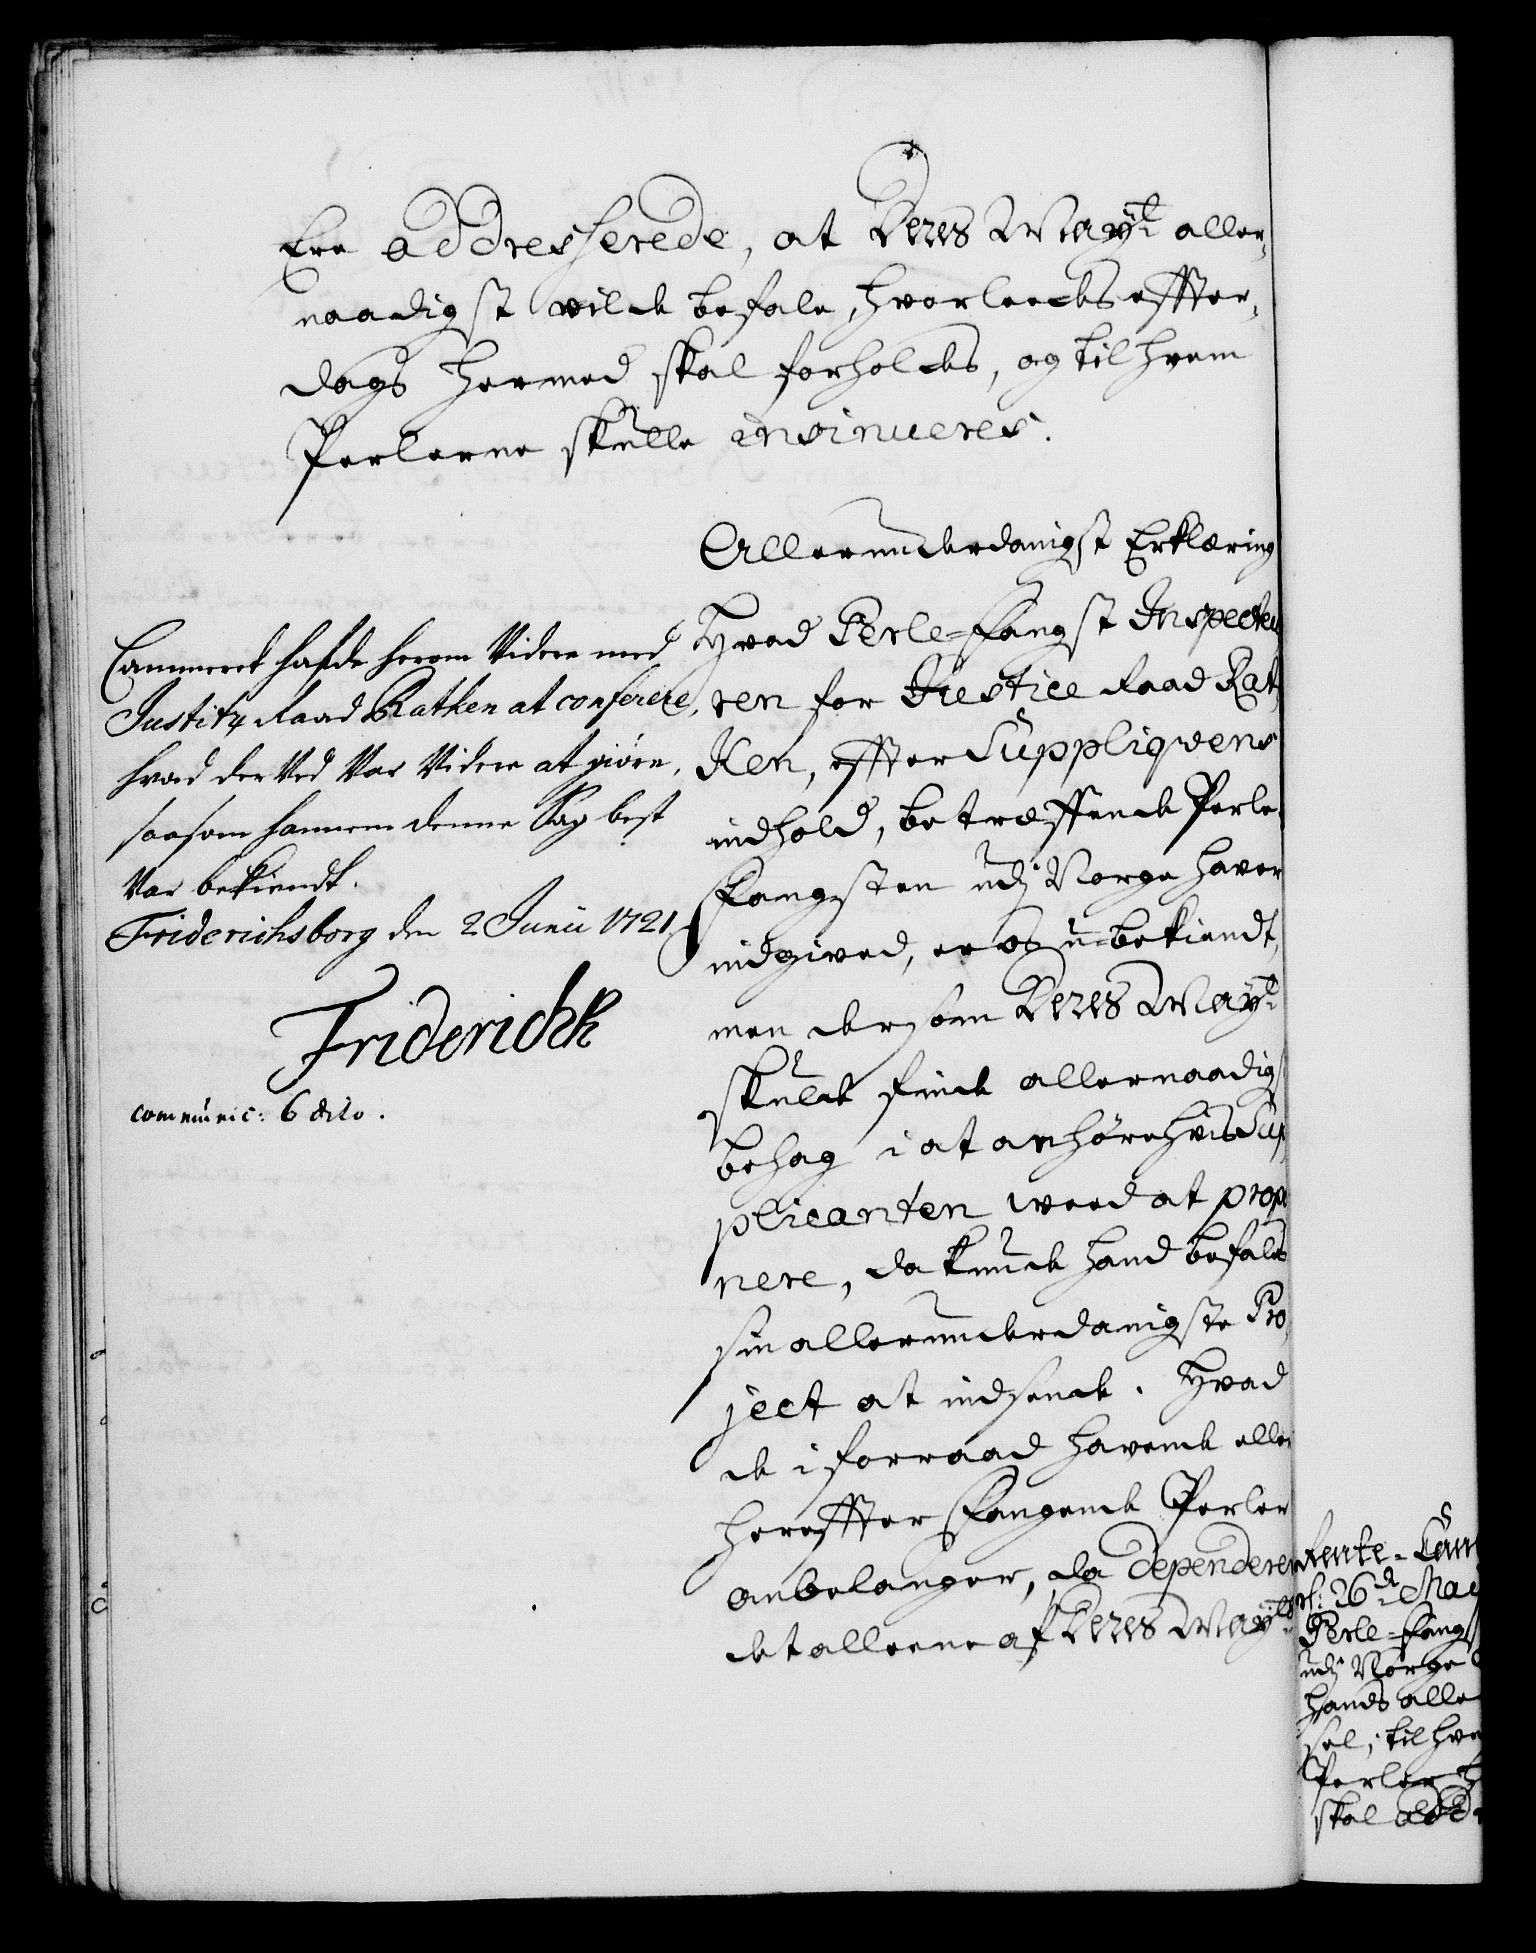 Ere addresserede, at Deres Mayt aller-
naadigst vilde befale, hvorleedes effter-
dags hermed skal forholdes, og til hvem
Perlerne skulle insinueres.
Allerunderdanigst Erklæring
Hvad Perle-Fangst Inspecteu
ren for Justice Raad Rat
Ken, effter Suppliqvens
indhold, betreffende Perle
Fangsten udj Norge haver
indgived, er os u-bekiendt,
men dersom Deres Mayt
skulde finde allernaadigs
behag i at anhøre hvis Sup
plicanten weed at propo
nere, da kunde hand befales
sin allerunderdanigste Pro
ject at indsende. Hvad
de i forraad havende eller
hereffter Fangende Perler
anbelanger, da dependerer
det alleene af Deres Mayts
Cammeret hafde herom Videre med
Justitz Raad Rathen at conferere,
hvad der Ved Var Videre at giøre,
saasom hannem denne Sag best
Var bekiendt.
Friderichsborg den 2 Junii 1721.
Friderich R
communic: 6 dito.
Rente-Cam
26de May
Perle-Fangs
udj Norge
hands alle
sel, til hve
Perler
skal add